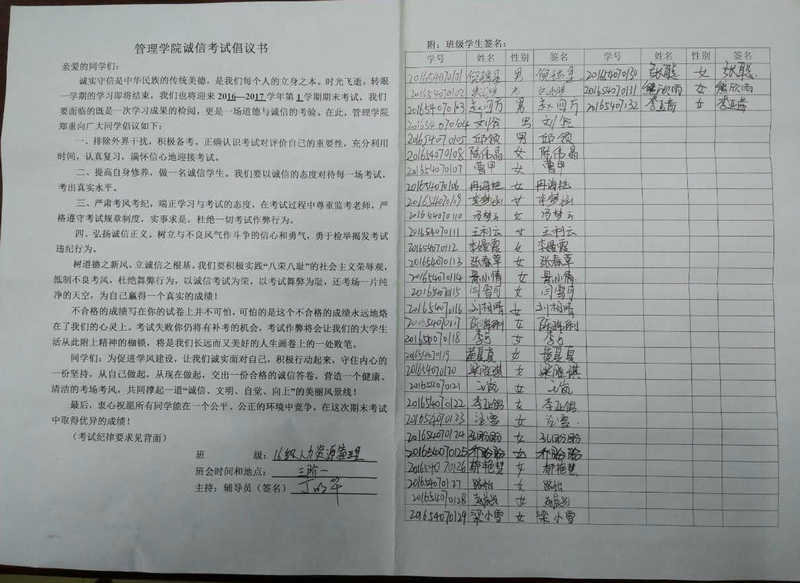 管理学院诚信考试倡议书
亲爱的同学们：
诚实守信是中华民族的传统美德，是我们每个人的立身之本。时光飞逝，转眼
一学期的学习即将结束，我们也将迎来2016—2017学年第1学期期末考试，我们
要面临的既是一次学习成果的检阅，更是一场道德与诚信的考验。在此，管理学院
郑重向广大同学倡议如下：
一、排除外界干扰，积极备考。正确认识考试对评价自己的重要性，充分利用
时间，认真复习，满怀信心地迎接考试。
二、提高自身修养，做一名诚信学生。我们要以诚信的态度对待每一场考试，
考出真实水平。
三、严肃考风考纪，端正学习与考试的态度，在考试过程中尊重监考老师，严
格遵守考试规章制度，实事求是，杜绝一切考试作弊行为。
四、弘扬诚信正义，树立与不良风气作斗争的信心和勇气，勇于检举揭发考试
违纪行为。
树道德之新风，立诚信之根基。我们要积极实践“八荣八耻”的社会主义荣辱观，
抵制不良考风，杜绝舞弊行为，以诚信考试为荣，以考试舞弊为耻，还考场一片纯
净的天空，为自己赢得一个真实的成绩！
不合格的成绩写在你的试卷上并不可怕，可怕的是这个不合格的成绩永远地烙
在了我们的心灵上。考试失败你仍将有补考的机会，考试作弊将会让我们的大学生
活从此附上精神的枷锁，将是我们长远而又美好的人生画卷上的一处败笔。
同学们：为促进学风建设，让我们诚实面对自己，积极行动起来，守住内心的
一份坚持，从自己做起，从现在做起，交出一份合格的诚信答卷，营造一个健康、
清洁的考场考风，共同撑起一道“诚信、文明、自觉、向上”的美丽风景线！
最后，衷心祝愿所有同学能在一个公平、公正的环境中竞争，在这次期末考试
中取得优异的成绩！
（考试纪律要求见背面）
班 级：16级人力资源管理
班会时间和地点：三阶一
主持：辅导员（签名）
附：班级学生签名：
学号 姓名 性别 签名 学号 姓名 性别 签名
201654070101 男 201654070130 张聪 女 张聪
201654070102 201654070131 熊欣雨 女 熊欣雨
201654070103 男 201654070132 女
201654070104 男
201654070105 邱领 男 邱领
201654070108 陈伟晶 女 陈伟晶
201654070107 曹甲 女 曹甲
201654070106 冉海艳 女 冉海艳
女
201654070110 冯梦云 女 冯梦云
201654070111 王利云 女 王利云
201654070112 李曼霞 女 李曼霞
201654070113 张春草 女 张春草
201654070114 景小倩 女 景小倩
201654070115 闫雪可 女 闫雪可
201654070116 女
201654070117 女
201654070118 女
201654070119 女
201654070120 女
201654070121 女
201654070122 女
201654070123 汪雪 女 汪雪
201654070124 孔盼盼 女 孔盼盼
201654070125 乔盼盼 女 乔盼盼
201654070126 郝艳慧 女 郝艳慧
201654070127 路怡 女 路怡
201654070128 女
201654070129 梁小雪 女 梁小雪